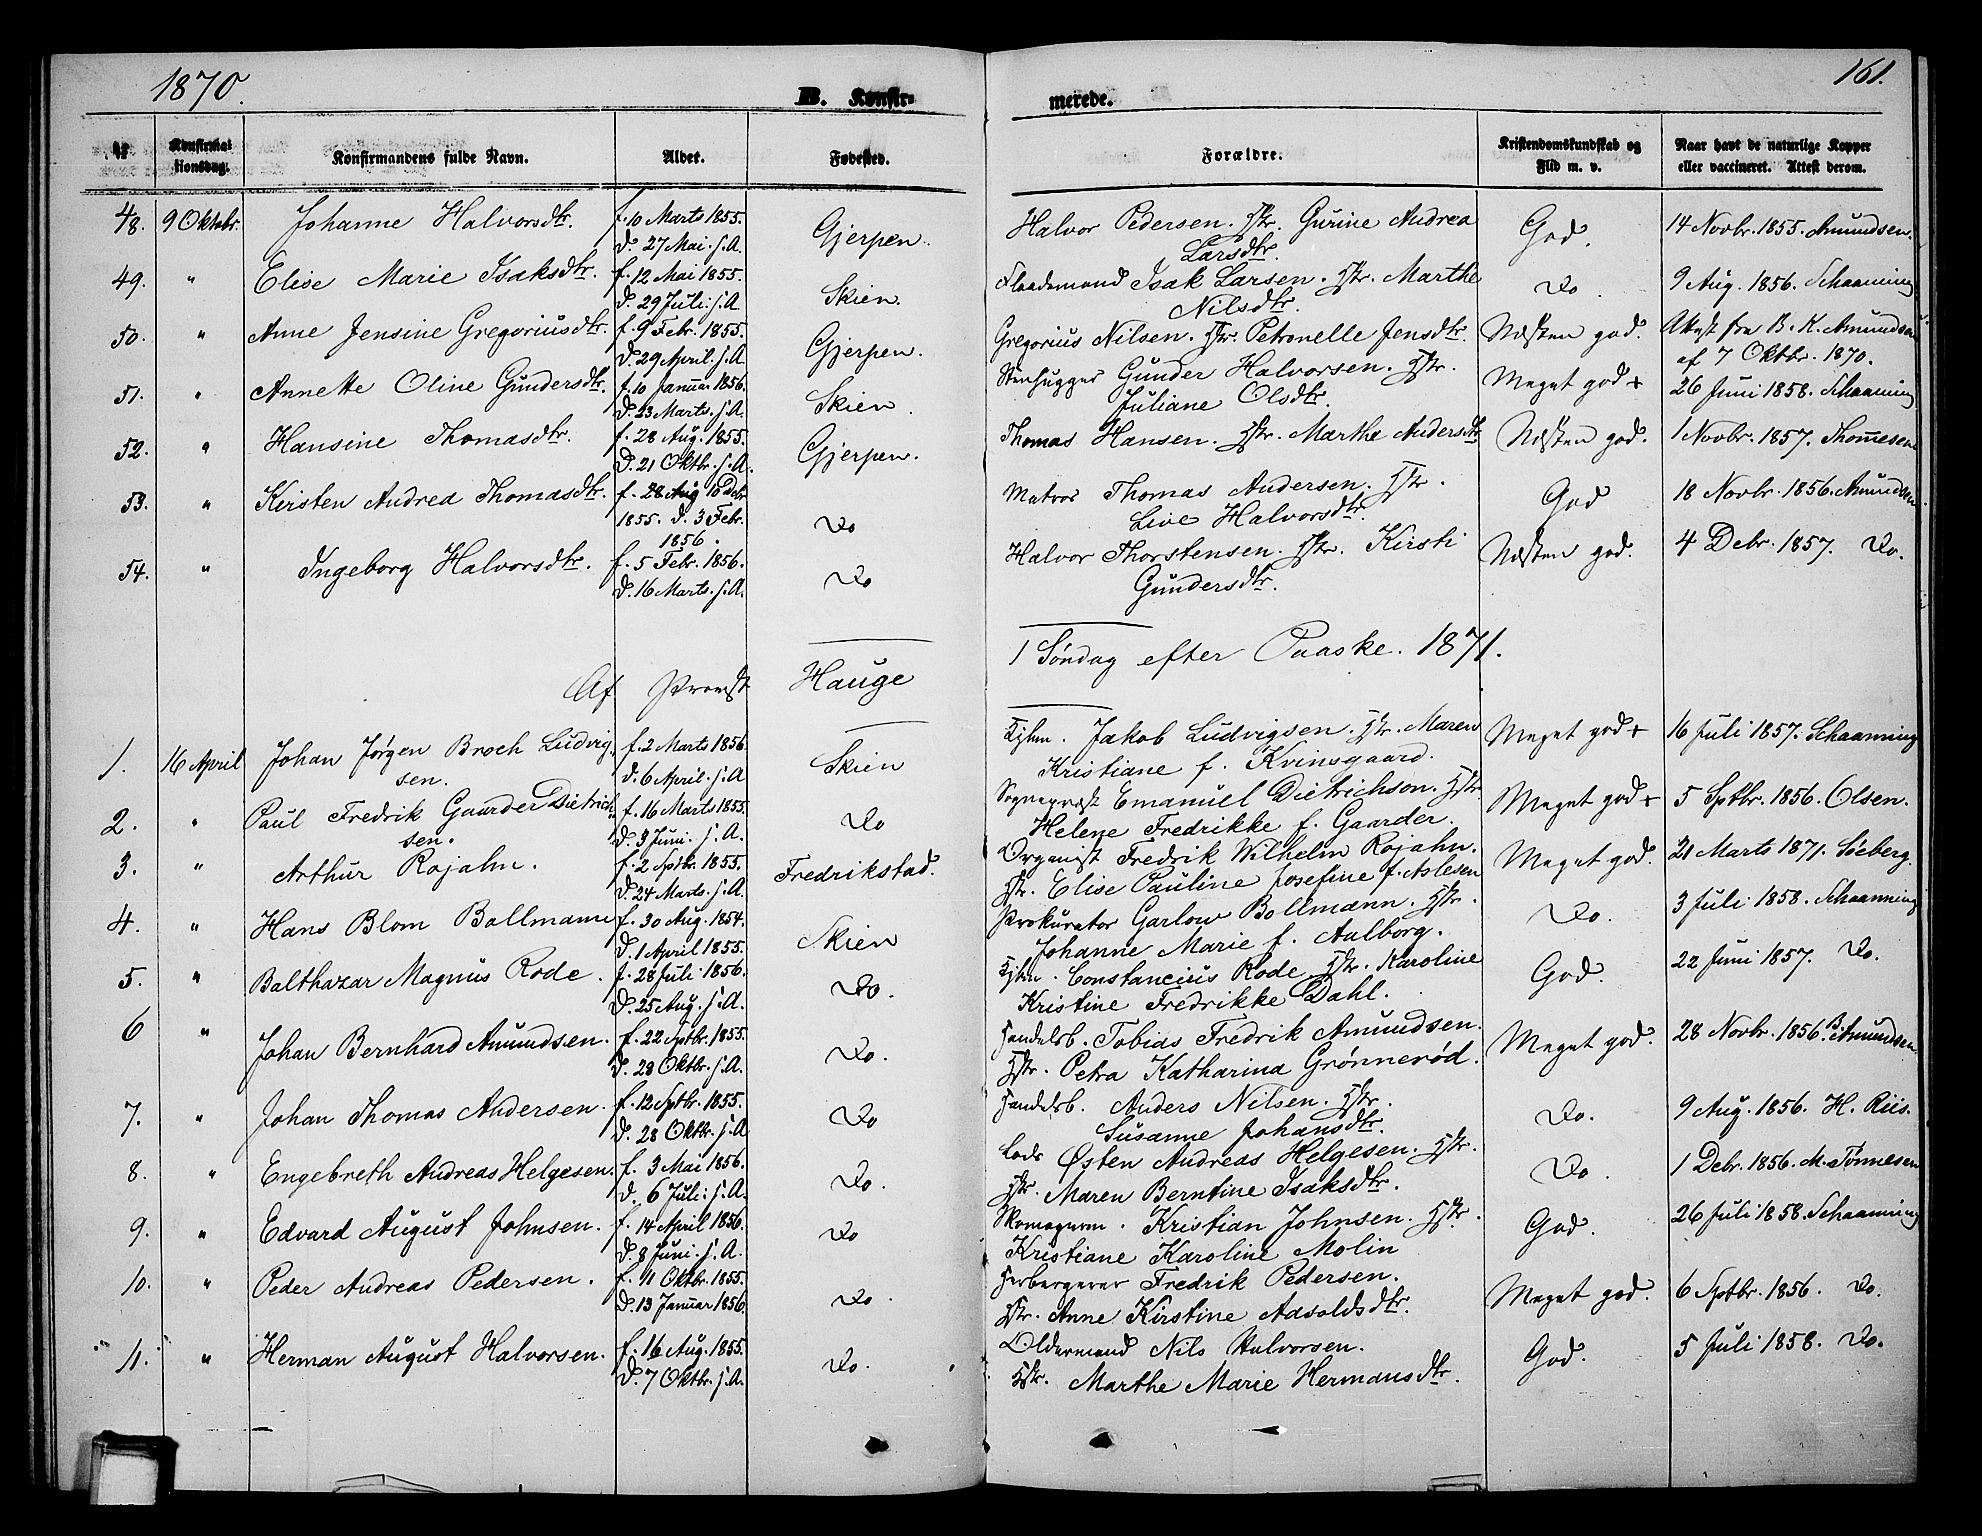 1870.
B. Konfir-
merede.
161.
Nr.
Konfirma-
tionsdag.
Konfirmandens fulde Navn.
Alder.
Fødested.
Forældre.
Kristendomskundskab og
Flid m. v.
Naar havt de naturlige Kopper
eller vaccineret. Attest derom.
48. 9 Oktobr. Johanne Halvorsdtr. f. 10 Marts 1855. Gjerpen. Halvor Pedersen. Hstr. Gurine Andrea God. 14 Novbr. 1855. Amundsen.
D. 27 Mai. s.A. Larsdtr.
49. " Elise Marie Isaksdtr. f. 12 Mai 1855. Skien. Flaademand Isak Larsen. Hstr. Marthe Do. 9 Aug. 1856. Schaanning
D. 29 Juli. s.A Nilsdtr.
50. " Anne Jensine Gregoriusdtr. f. 9 Febr. 1855. Gjerpen. Gregorius Nilsen. Hstr. Petronelle Jensdtr. Næsten god. Attest fra B. K. Amundsen
D. 29 April. s.A af 7 Oktbr. 1870.
51. " Annette Oline Gundersdtr. f. 10 Januar 1856. Skien. Stenhugger Gunder Halvorsen. Hstr. Meget god + 26 Juni 1858. Schaanning
D. 23 Marts. s.A. Juliane Olsdtr.
52. " Hansine Thomasdtr. f. 28 Aug. 1855. Gjerpen. Thomas Hansen. Hstr. Marthe Andersdtr Næsten god. 1 Novbr. 1857. Thommesen
D. 21 Oktbr. s.A.
53. " Kirsten Andrea Thomasdtr. f. 28 Aug 10 Debr Do Matros Thomas Andersen. Hstr. God 18 Novbr. 1856. Amundsen
1855. D. 3 Febr. Live Halvorsdtr.
1856.
54. " Ingeborg Halvorsdtr. f. 5 Febr. 1856. Do Halvor Thorstensen. Hstr. Kirsti Næsten god. 4 Debr. 1857. Do.
D. 16 Marts. s.A. Gundersdtr.
Af Provst Hauge 1 Søndag efter Paaske. 1871.
1. 16 April Johan Jørgen Broch Ludvig- f. 2 Marts 1856. Skien Kjbm. Jakob Ludvigsen. Hstr. Maren Meget god + 16 Juli 1857. Schaanning
sen. D. 6 April. s.A Kristiane f. Kvinsgaard.
2. " Paul Fredrik Gaarder Dietrich- f. 16 Marts 1855. Do Sognepræst Emanuel Dietrichson. Hstr. Meget god + 5 Sptbr. 1856. Olsen.
sen. D. 3 Juni. s.A. Helene Fredrikke f. Gaarder.
3. " Arthur Rojahn. f. 2 Sptbr. 1855. Fredrikstad. Organist Fredrik Wilhelm Rojahn. Meget god. 21 Marts 1871. Søeberg.
D. 24 Marts. s.A. Hstr. Elise Pauline Josefine f. Aslesen
4. " Hans Blom Bollmann f. 30 Aug. 1854. Skien Prokurator Garlow Bollmann. Hstr. Do. 3 Juli 1858. Schaanning
D. 1 April 1855. Johanne Marie f. Aalborg.
5. " Balthazar Magnus Rode. f. 28 Juli 1856. Do. Kjbm. Constancius Rode. Hstr. Karoline God. 22 Juni 1857. Do.
D. 25 Aug. s.A. Kristine Fredrikke Dahl.
6 " Johan Bernhard Amundsen. f. 22 Sptbr. 1855. Do. Handelsb. Tobias Fredrik Amundsen. Meget god. 28 Novbr. 1856. B. Amundsen
D. 28 Oktbr. s.A. Hstr. Petra Katharina Grønnerød.
7. " Johan Thomas Andersen. f. 12 Sptbr. 1855. Do Handelsb. Anders Nilsen. Hstr. Do. 9 Aug. 1856. H. Riis.
D. 28 Oktbr. s.A Susanne Johansdtr.
8. " Engebreth Andreas Helgesen. f. 3 Mai 1856. Do. Lods Østen Andreas Helgesen. Hstr. Do. 1 Debr. 1856. M. Tønnesen
D. 6 Juli. s.A. Hstr. Maren Berntine Isaksdtr.
9. " Edvard August Johnsen. f. 14 April 1856. Do Skomagerm. Kristian Johnsen. Hstr. God. 26 Juli 1858. Schaanning
D. 8 Juni. s.A. Kristiane Karoline Molin
10. " Peder Andreas Pedersen. f. 11 Oktbr. 1855. Do. Herbergerer Fredrik Pedersen. Meget god. 6 Sptbr. 1856. Do.
D. 13 Januar 1856. Hstr. Anne Kirstine Aasoldsdtr.
11. " Herman August Halvorsen. f. 16 Aug. 1855. Do. Oldermand Nils Halvorsen. God. 5 Juli 1858. Do.
D. 7 Oktbr. s.A. Hstr. Marthe Marie Hermansdtr.